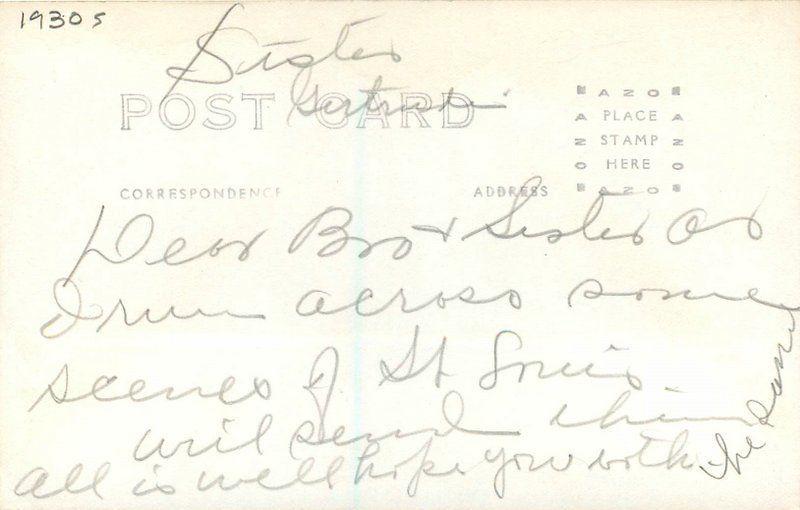 1930s
Sister
Gertrude
POST CARD
AZO
A PLACE A
Z STAMP Z
O HERE O
AZO
CORRESPONDENCE
ADDRESS
Dear Bro + Sister as
I run across some
scenes of St Louis
will send them
all is well hope you both
the same